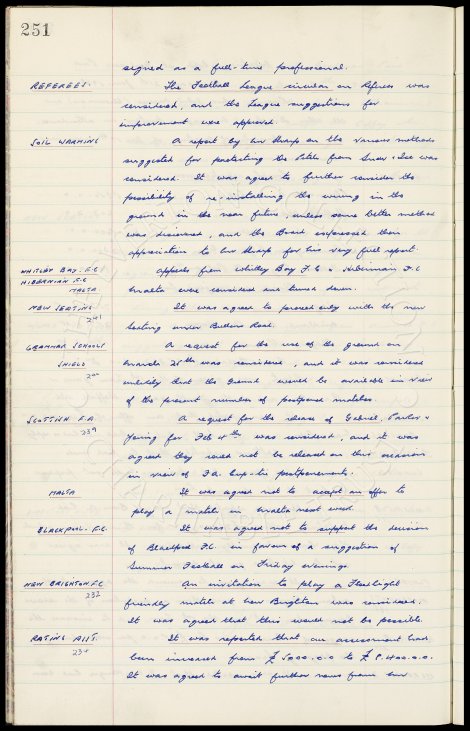 251
signed as a full-time professional.
REFEREES. The Football League circular on Referees was
considered, and the League suggestions for
improvement were approved.
SOIL WARMING A report by Mr Sharp on the various methods
suggested for protecting the Pitch from Snow & Ice was
considered. It was agreed to further consider the
possibility of re-installing the wiring in the
ground in the near future, unless some better method
was discovered, and the Board expressed their
appreciation to Mr Sharp for his very full report.
WHITLEY BAY. F.C. Appeals from Whitley Bay F.C. & Hibernian F.C
HIBERNIAN F.C
MALTA Malta were considered and turned down.
NEW SEATING It was agreed to proceed only with the new
241 Seating under Bullens Road.
GRAMMAR SCHOOLS A request for the use of the ground on
SHIELD March 25th was considered, and it was considered
unlikely that the Ground would be available in view
of the present number of postponed matches.
SCOTTISH F.A A request for the release of Gabriel, Parker &
239 Young for Feb 4th was considered, and it was
agreed they could not be released on this occasion
in view of F.A. Cup-tie postponements.
MALTA It was agreed not to accept an offer to
play a match in Malta next week.
BLACKPOOL. F.C. It was agreed not to support the decision
of Blackpool F.C. in favour of a suggestion of
Summer Football on Friday evenings.
NEW BRIGHTON. F.C An invitation to play a Floodlight
232 friendly match at New Brighton was considered.
It was agreed that this would not be possible.
RATING It was reported that our assessment had
been increased from £5000.0.0 to £8,400.0.0.
It was agreed to await further news from our